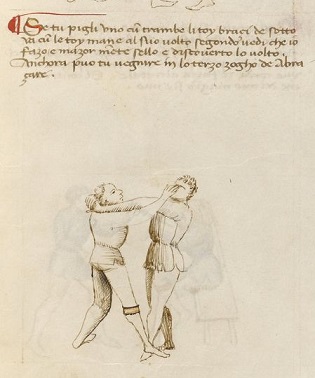 Se tu pigli uno cum trambe li toy braci de sotto
va cum le toy mane al suo volto segondo vedi che io
fazo e mazormente sello e discoverto lo volto.
Anchora puo tu vegnire in lo terzo zogho de Abra
çare.